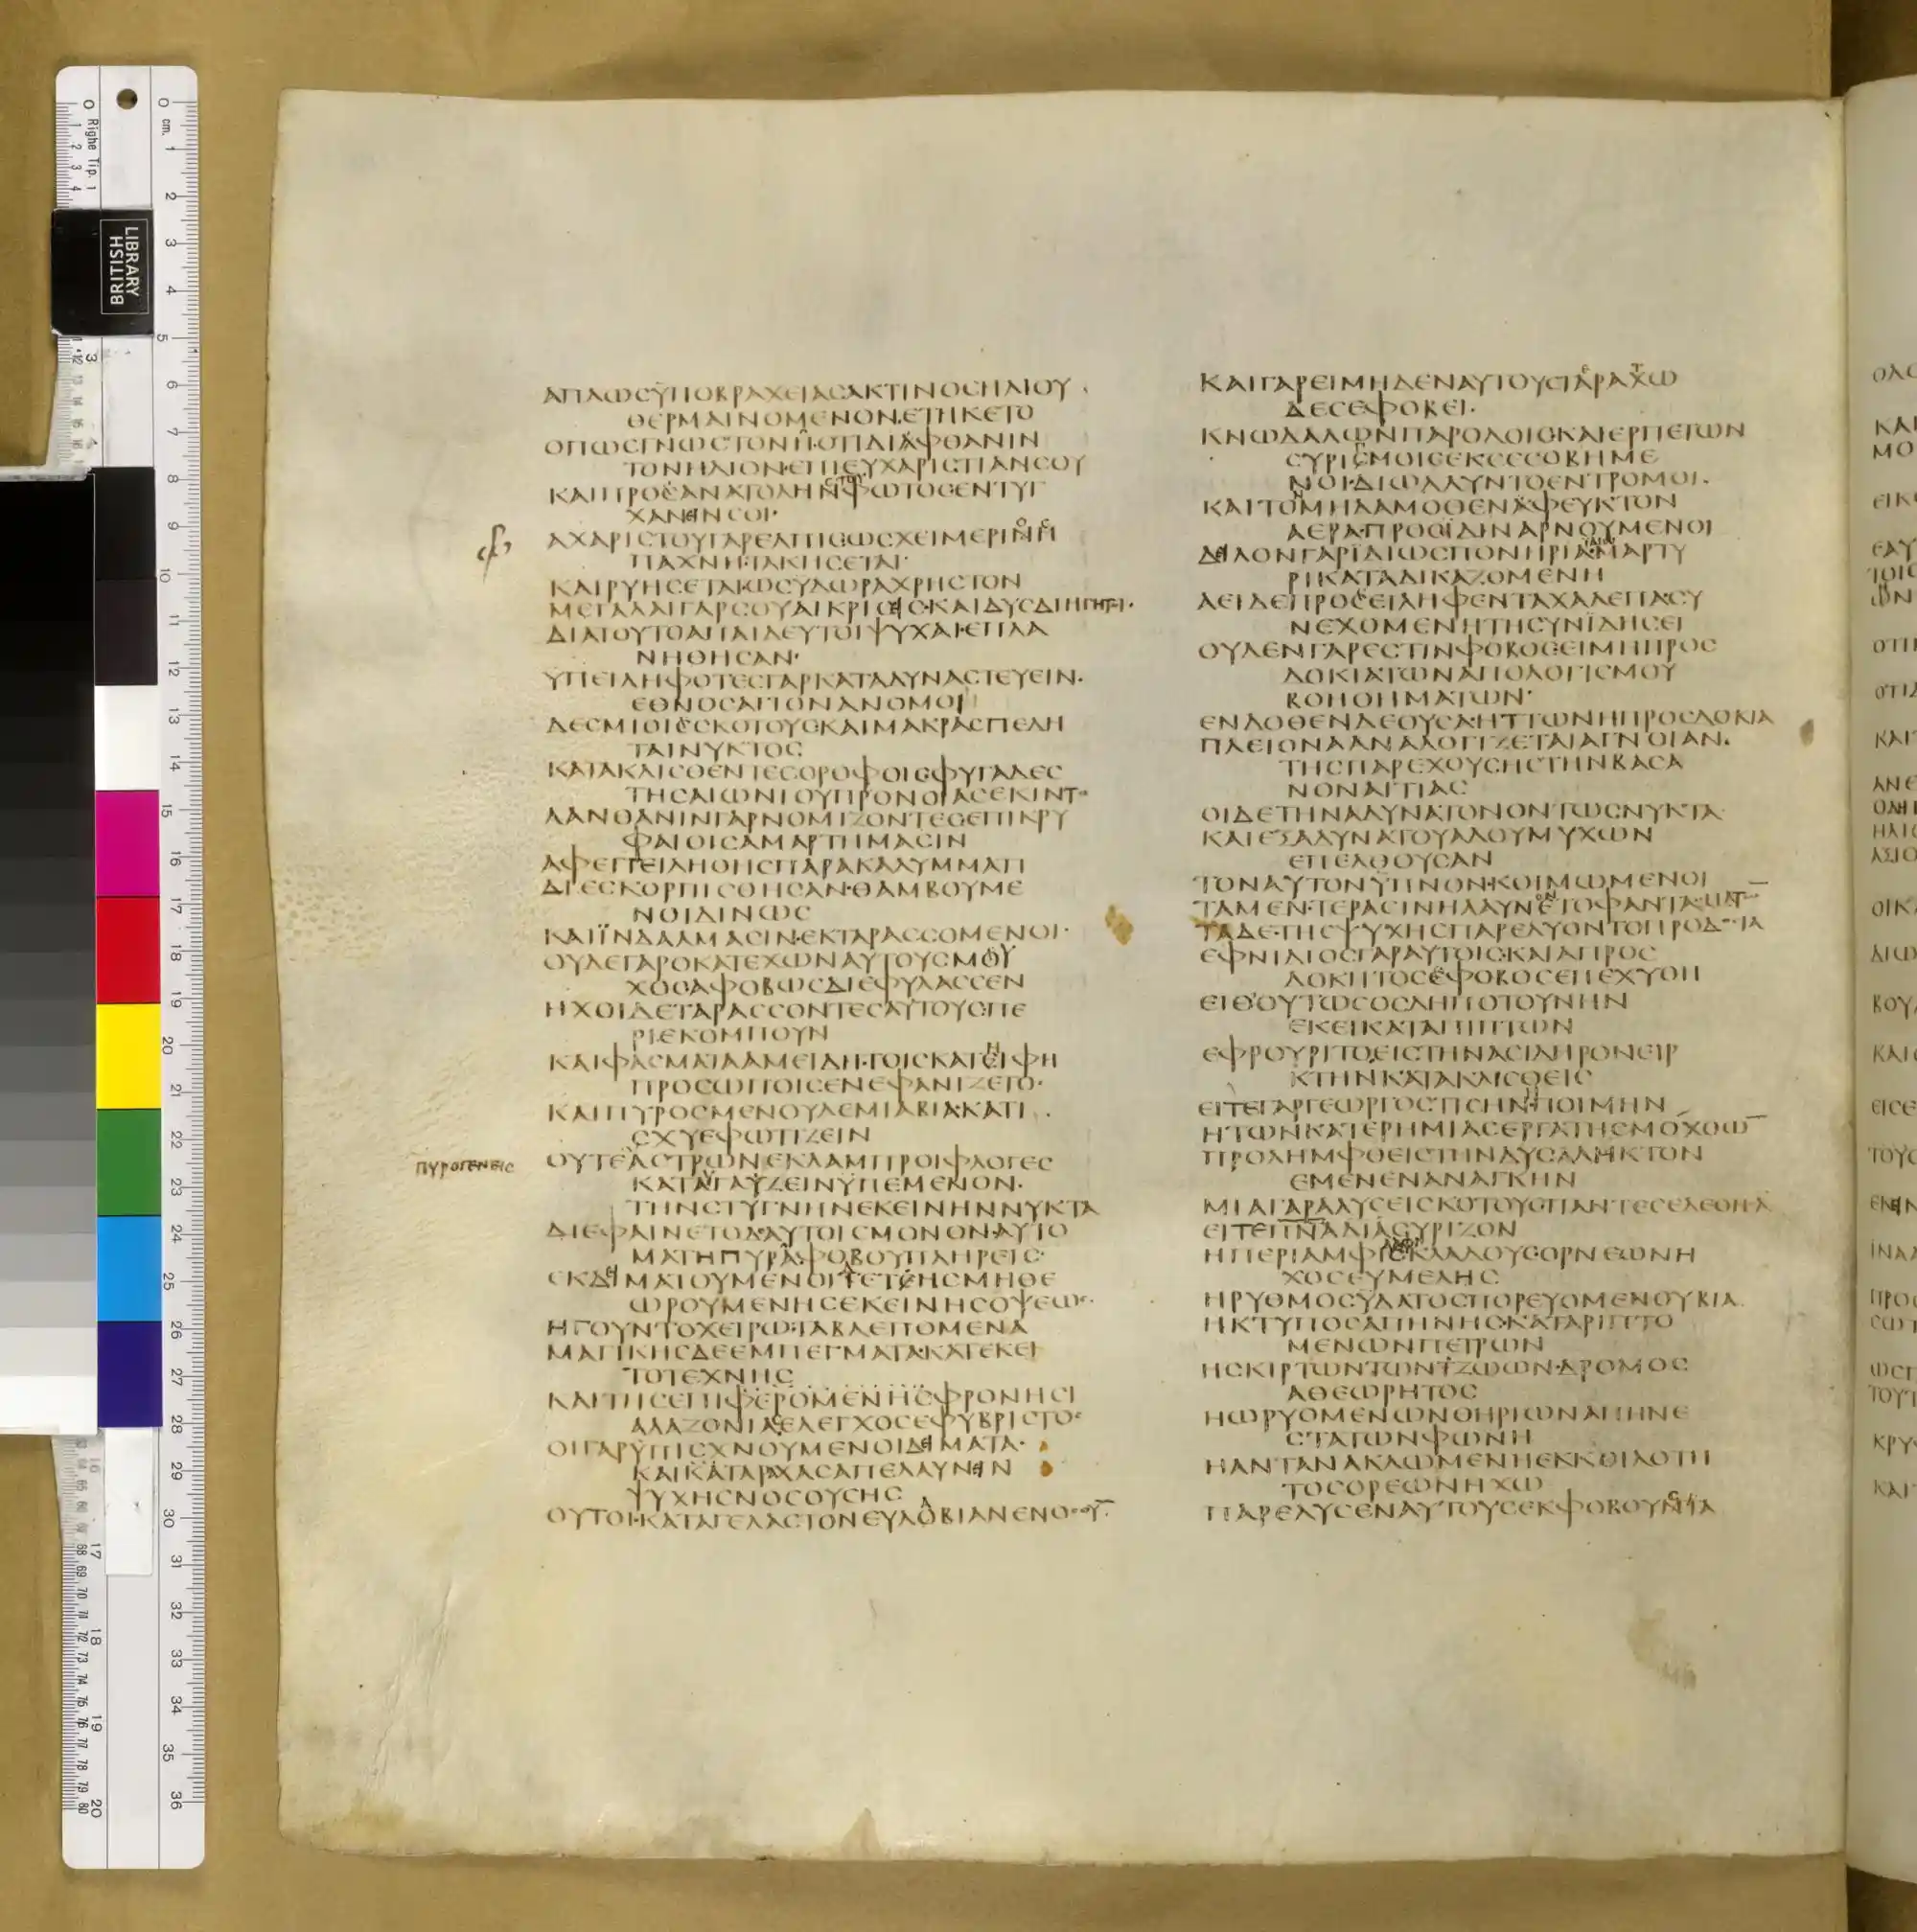 ΑΠΛΩСΫΠΟΒΡΑΧΕΙΑСΑΚΤΙΝΟСΗΛΙΟΥ
ΘΕΡΜΑΙΝΟΜΕΝΟΝ·ΕΤΗΚΕΤΟ
ΤΟΝΗΛΙΟΝ·ΕΠΙΕΥΧΑΡΙСΤΙΑΝСΟΥ
ΚΑΙΠΡΟСΑΝΑΤΟΛΗΝΦΩΤΟСΕΝΤΥΓ
ΧΑΝΕΙΝСΟΙ·
ΑΧΑΡΙСΤΟΥΓΑΡΕΛΠΙСΩСΧΕΙΜΕΡΙΝΗ
ΠΑΧΝΗ·ΤΑΚΗСΕΤΑΙ·
ΚΑΙΡΥΗСΕΤΑΙ·ΩСΥΔΩΡΑΧΡΗСΤΟΝ
ΜΕΓΑΛΑΙΓΑΡСΟΥΑΙΚΡΙСΕΙС·ΚΑΙΔΥСΔΙΗΓΗΤΟΙ·
ΔΙΑΤΟΥΤΟΑΠΑΙΔΕΥΤΟΙΨΥΧΑΙ·ΕΠΛΑ
ΝΗΘΗСΑΝ·
ΥΠΕΙΛΗΦΟΤΕСΓΑΡΚΑΤΑΔΥΝΑСΤΕΥΕΙΝ·
ΕΘΝΟСΑΓΙΟΝΑΝΟΜΟΙ
ΔΕСΜΙΟΙСΚΟΤΟΥСΚΑΙΜΑΚΡΑСΠΕΔΗ
ΤΑΙΝΥΚΤΟС
ΚΑΤΑΚΛΙСΘΕΝΤΕСΟΡΟΦΟΙСΦΥΓΑΔΕС
ΤΗСΑΙΩΝΙΟΥΠΡΟΝΟΙΑСΕΚΙΝΤΟ
ΛΑΝΘΑΝΙΝΓΑΡΝΟΜΙΖΟΝΤΕСΕΠΙΚΡΥ
ΦΑΙΟΙСΑΜΑΡΤΗΜΑСΙΝ
ΑΦΕΓΓΕΙΛΗΘΗСΠΑΡΑΚΑΛΥΜΜΑΤΙ
ΔΙΕСΚΟΡΠΙСΘΗСΑΝ·ΘΑΜΒΟΥΜΕ
ΝΟΙΔΙΝΩС
ΚΑΙΪΝΔΑΛΜΑСΙΝ·ΕΚΤΑΡΑССΟΜΕΝΟΙ·
ΟΥΔΕΓΑΡΟΚΑΤΕΧΩΝΑΥΤΟΥСΜΟΥ
ΧΟСΑΦΟΒΩСΔΙΕΦΥΛΑССΕΝ
ΗΧΟΙΔΕΤΑΡΑССΟΝΤΕСΑΥΤΟΥСΠΕ
ΡΙΕΚΟΜΠΟΥΝ
ΚΑΙΦΑСΜΑΤΑΑΜΕΙΔΗ·ΤΟΙСΚΑΤΕΙΦΗ
ΠΡΟСΩΠΟΙСΕΝΕΦΑΝΙΖΕΤΟ·
ΚΑΙΠΥΡΟСΜΕΝΟΥΔΕΜΙΑΒΙΑ·ΚΑΤΙ
СΧΥΕΦΩΤΙΖΕΙΝ
ΠΥΡΟΓΕΝΕΙС
ΟΥΤΕΑСΤΡΩΝΕΚΛΑΜΠΡΟΙΦΛΟΓΕС
ΚΑΤΑΥΓΑΖΕΙΝΫΠΕΜΕΝΟΝ·
ΤΗΝСΤΥΓΝΗΝΕΚΕΙΝΗΝΝΥΚΤΑ
ΔΙΕΦΑΙΝΕΤΟΔ·ΑΥΤΟΙСΜΟΝΟΝ·ΑΥΤΟ
ΜΑΤΗΠΥΡΑ·ΦΟΒΟΥΠΛΗΡΕΙС·
ΕΚΔΕΙΜΑΤΟΥΜΕΝΟΙΤΕΤΗСΜΗΘΕ
ΩΡΟΥΜΕΝΗСΕΚΕΙΝΗСΟΨΕΩС·
ΗΓΟΥΝΤΟΧΕΙΡΩ·ΤΑΒΛΕΠΟΜΕΝΑ
ΜΑΓΙΚΗСΔΕΕΜΠΕΓΜΑΤΑ·ΚΑΤΕΚΕΙ
ΤΟΤΕΧΝΗС
ΚΑΙΤΗСΕΠΙΦΕΡΟΜΕΝΗСΦΡΟΝΗСΙ
ΑΛΑΖΟΝΙΑΕΛΕΓΧΟСΕΦΥΒΡΙСΤΟС
ΟΙΓΑΡΫΠΙСΧΝΟΥΜΕΝΟΙΔΕΙΜΑΤΑ·
ΚΑΙΚΑΤΑΡΑΧΑСΑΠΕΛΑΥΝΕΙΝ
ΨΥΧΗСΝΟСΟΥСΗС
ΟΥΤΟΙ·ΚΑΤΑΓΕΛΑСΤΟΝΕΥΛΟΒΙΑΝΕΝΟСΟΥ
ΚΑΙΓΑΡΕΙΜΗΔΕΝΑΥΤΟΥСΤΑΡΑΧΩ
ΔΕСΕΦΟΒΕΙ·
ΚΝΩΔΑΛΩΝΠΑΡΟΔΟΙСΚΑΙΕΡΠΕΤΩΝ
СΥΡΙСΜΟΙСΕΚСΕСΟΒΗΜΕ
ΝΟΙ·ΔΙΩΛΛΥΝΤΟΕΝΤΡΟΜΟΙ·
ΚΑΙΤΟΜΗΔΑΜΟΘΕΝΑΦΕΥΚΤΟΝ
ΑΕΡΑ·ΠΡΟСΪΔΙΝΑΡΝΟΥΜΕΝΟΙ
ΔΕΙΛΟΝΓΑΡΪΔΙΩСΠΟΝΗΡΙΑ·ΜΑΡΤΥ
ΡΙΚΑΤΑΔΙΚΑΖΟΜΕΝΗ
ΑΕΙΔΕΠΡΟСΕΙΛΗΦΕΝΤΑΧΑΛΕΠΑ·СΥ
ΝΕΧΟΜΕΝΗΤΗСΥΝΪΔΗСΕΙ
ΟΥΔΕΝΓΑΡΕСΤΙΝΦΟΒΟСΕΙΜΗΠΡΟС
ΔΟΚΙΑΤΩΝΑΠΟΛΟΓΙСΜΟΥ
ΒΟΗΘΗΜΑΤΩΝ·
ΕΝΔΟΘΕΝΔΕΟΥСΑ·ΗΤΤΩΝΗΠΡΟСΔΟΚΙΑ
ΠΛΕΙΟΝΑΑΝΑΛΟΓΙΖΕΤΑΙΑΓΝΟΙΑΝ·
ΤΗСΠΑΡΕΧΟΥСΗСΤΗΝΒΑСΑ
ΝΟΝΑΙΤΙΑС
ΟΙΔΕΤΗΝΑΔΥΝΑΤΟΝΟΝΤΩСΝΥΚΤΑ
ΚΑΙΕΞΑΔΥΝΑΤΟΥΑΔΟΥΜΥΧΩΝ
ΕΠΕΛΘΟΥСΑΝ
ΤΟΝΑΥΤΟΝΫΠΝΟΝ·ΚΟΙΜΩΜΕΝΟΙ
ΤΑΜΕΝ·ΤΕΡΑСΙΝΗΛΑΥΝΕΤΟΦΑΝΤΑСΜΑΤΩ
ΤΑΔΕ·ΤΗСΨΥΧΗСΠΑΡΕΛΥΟΝΤΟΠΡΟΔΟСΙΑ
ΕΦΝΙΔΙΟСΓΑΡΑΥΤΟΙС·ΚΑΙΑΠΡΟС
ΔΟΚΗΤΟСΦΟΒΟСΕΠΕΧΥΘΗ
ΕΙΘΟΥΤΩСΟСΔΗΠΟΤΟΥΝΗΝ
ΕΚΕΙΚΑΤΑΠΙΠΤΩΝ
ΕΦΡΟΥΡΙΤΟ·ΕΙСΤΗΝΑСΙΔΗΡΟΝΕΙΡ
ΚΤΗΝΚΑΤΑΚΛΙСΘΕΙС
ΕΙΤΕΓΑΡΓΕΩΡΓΟСΤΙСΗΝΠΟΙΜΗΝ
ΗΤΩΝΚΑΤΕΡΗΜΙΑСΕΡΓΑΤΗСΜΟΧΘΩ
ΠΡΟΛΗΜΦΘΕΙСΤΗΝΔΥСΑΛΗΚΤΟΝ
ΕΜΕΝΕΝΑΝΑΓΚΗΝ
ΜΙΑΓΑΡΑΛΥСΕΙСΚΟΤΟΥСΠΑΝΤΕСΕΔΕΘΗСΑ
ΕΙΤΕΠΝΑΔΙΑСΥΡΙΖΟΝ
ΗΠΕΡΙΑΜΦΙΚΛΑΔΟΥСΟΡΝΕΩΝΗ
ΧΟСΕΥΜΕΛΗС
ΗΡΥΘΜΟСΥΔΑΤΟСΠΟΡΕΥΟΜΕΝΟΥΒΙΑ
ΗΚΤΥΠΟСΑΠΗΝΗС·ΚΑΤΑΡΙΠΤΟ
ΜΕΝΩΝΠΕΤΡΩΝ
ΗСΚΙΡΤΩΝΤΩΝΖΩΩΝ·ΔΡΟΜΟС
ΑΘΕΩΡΗΤΟС
ΗΩΡΥΟΜΕΝΩΝΘΗΡΙΩΝΑΠΗΝΕ
СΤΑΤΩΝΦΩΝΗ
ΗΑΝΤΑΝΑΚΛΩΜΕΝΗΕΚΚΟΙΛΟΤΗ
ΤΟСΟΡΕΩΝΗΧΩ
ΠΑΡΕΛΥСΕΝΑΥΤΟΥСΕΚΦΟΒΟΥΝΤΑ